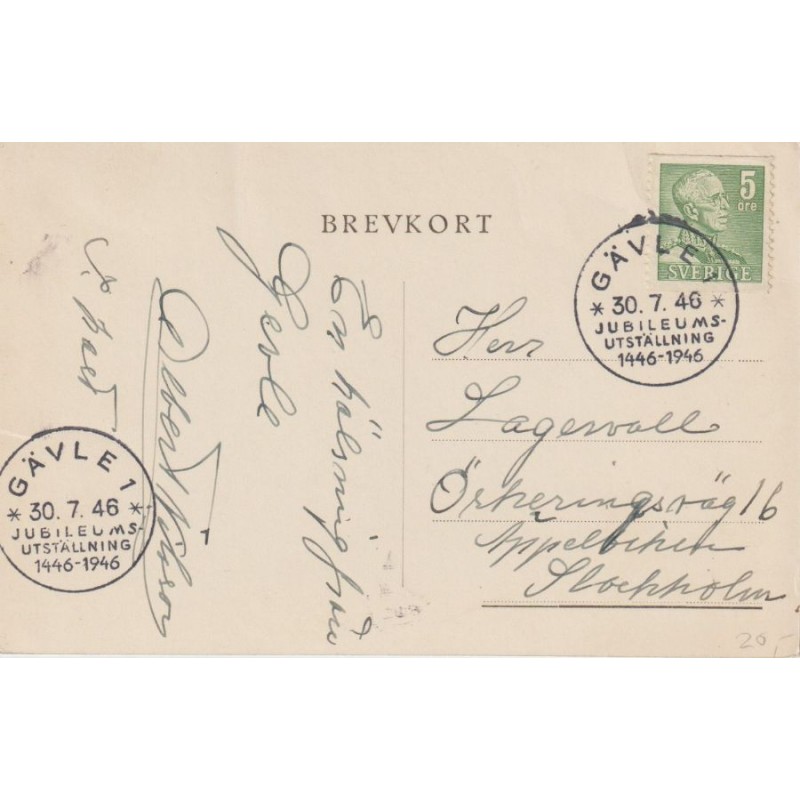 BREVKORT
5
öre
SVERIGE
GÄVLE 1
* 30. 7. 46 *
JUBILEUMS-
UTSTÄLLNING
1446-1946
En hälsning från
Gevle
Albert Nilsson
Herr
Lagerwall
Örkeringsväg 16
Appelviken
Stockholm
GÄVLE 1
* 30. 7. 46 *
JUBILEUMS-
UTSTÄLLNING
1446-1946
20,-